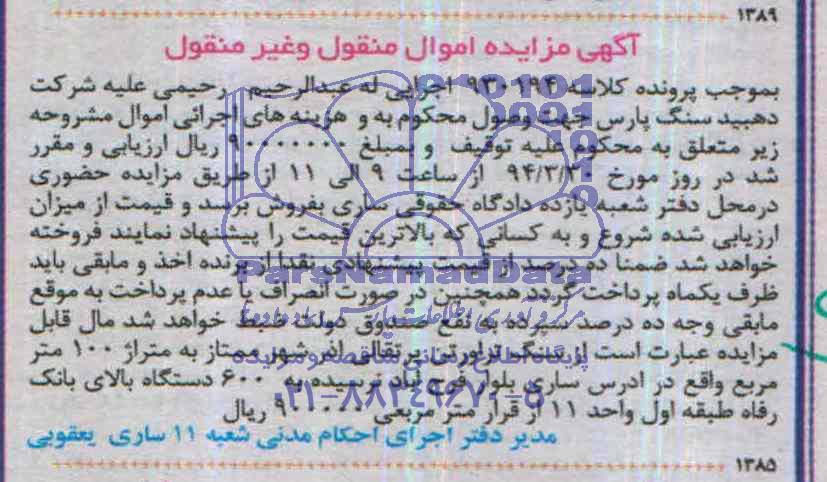 ۱۳۸۹
آگهی مزایده اموال منقول وغیر منقول
بموجب پرونده کلاسه ۹۳۰۱۹۴ اجرایی له عبدالرحیم رحیمی علیه شرکت
دهبید سنگ پارس جهت وصول محکوم به و هزینه های اجرائی اموال مشروحه
زیر متعلق به محکوم علیه توقیف و بمبلغ ۹۰۰۰۰۰۰۰ ریال ارزیابی و مقرر
شد در روز مورخ ۹۴/۳/۳۰ از ساعت ۹ الی ۱۱ از طریق مزایده حضوری
درمحل دفتر شعبه یازده دادگاه حقوقی ساری بفروش برسد و قیمت از میزان
ارزیابی شده شروع و به کسانی که بالاترین قیمت را پیشنهاد نمایند فروخته
خواهد شد ضمنا ده درصد از قیمت پیشنهادی نقدا از برنده اخذ و مابقی باید
ظرف یکماه پرداخت گردد همچنین در صورت انصراف یا عدم پرداخت به موقع
مابقی وجه ده درصد سپرده به نفع صندوق دولت ضبط خواهد شد مال قابل
مزایده عبارت است از سنگ تراورتن پرتقالی شهر ممتاز به متراژ ۱۰۰ متر
مربع واقع در ادرس ساری بلوار فرح آباد نرسیده به ۶۰۰ دستگاه بالای بانک
رفاه طبقه اول واحد ۱۱ از قرار متر مربعی ۹۰۰۰۰۰ ریال
مدیر دفتر اجرای احکام مدنی شعبه ۱۱ ساری یعقوبی
۱۳۸۵
ParsNamadData
۰۲۱-۸۸۳۴۹۶۷۰-۵